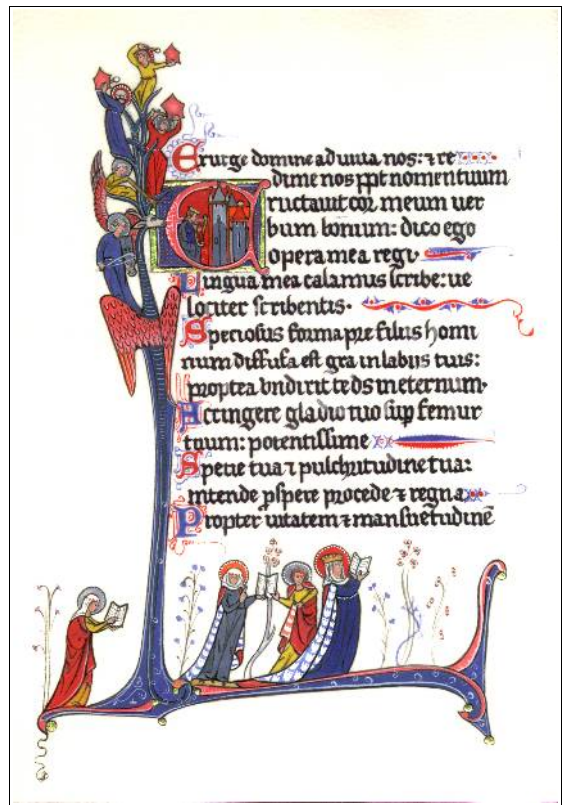 Exurge domine adiuva nos: ⁊ re
dime nos ppt nomen tuum
Eructauit cor meum uer
bum bonum: dico ego
opera mea regi.
Lingua mea calamus scribe: ue
lociter scribentis.
Speciosus forma pre filiis homi
num diffusa est gra in labijs tuis:
proptea vndixit te ds in eternum.
Accingere gladio tuo sup femur
tuum: potentissime
Specie tua ⁊ pulchritudine tua:
intende pspere procede ⁊ regna
Propter uitatem ⁊ mansuetudinē